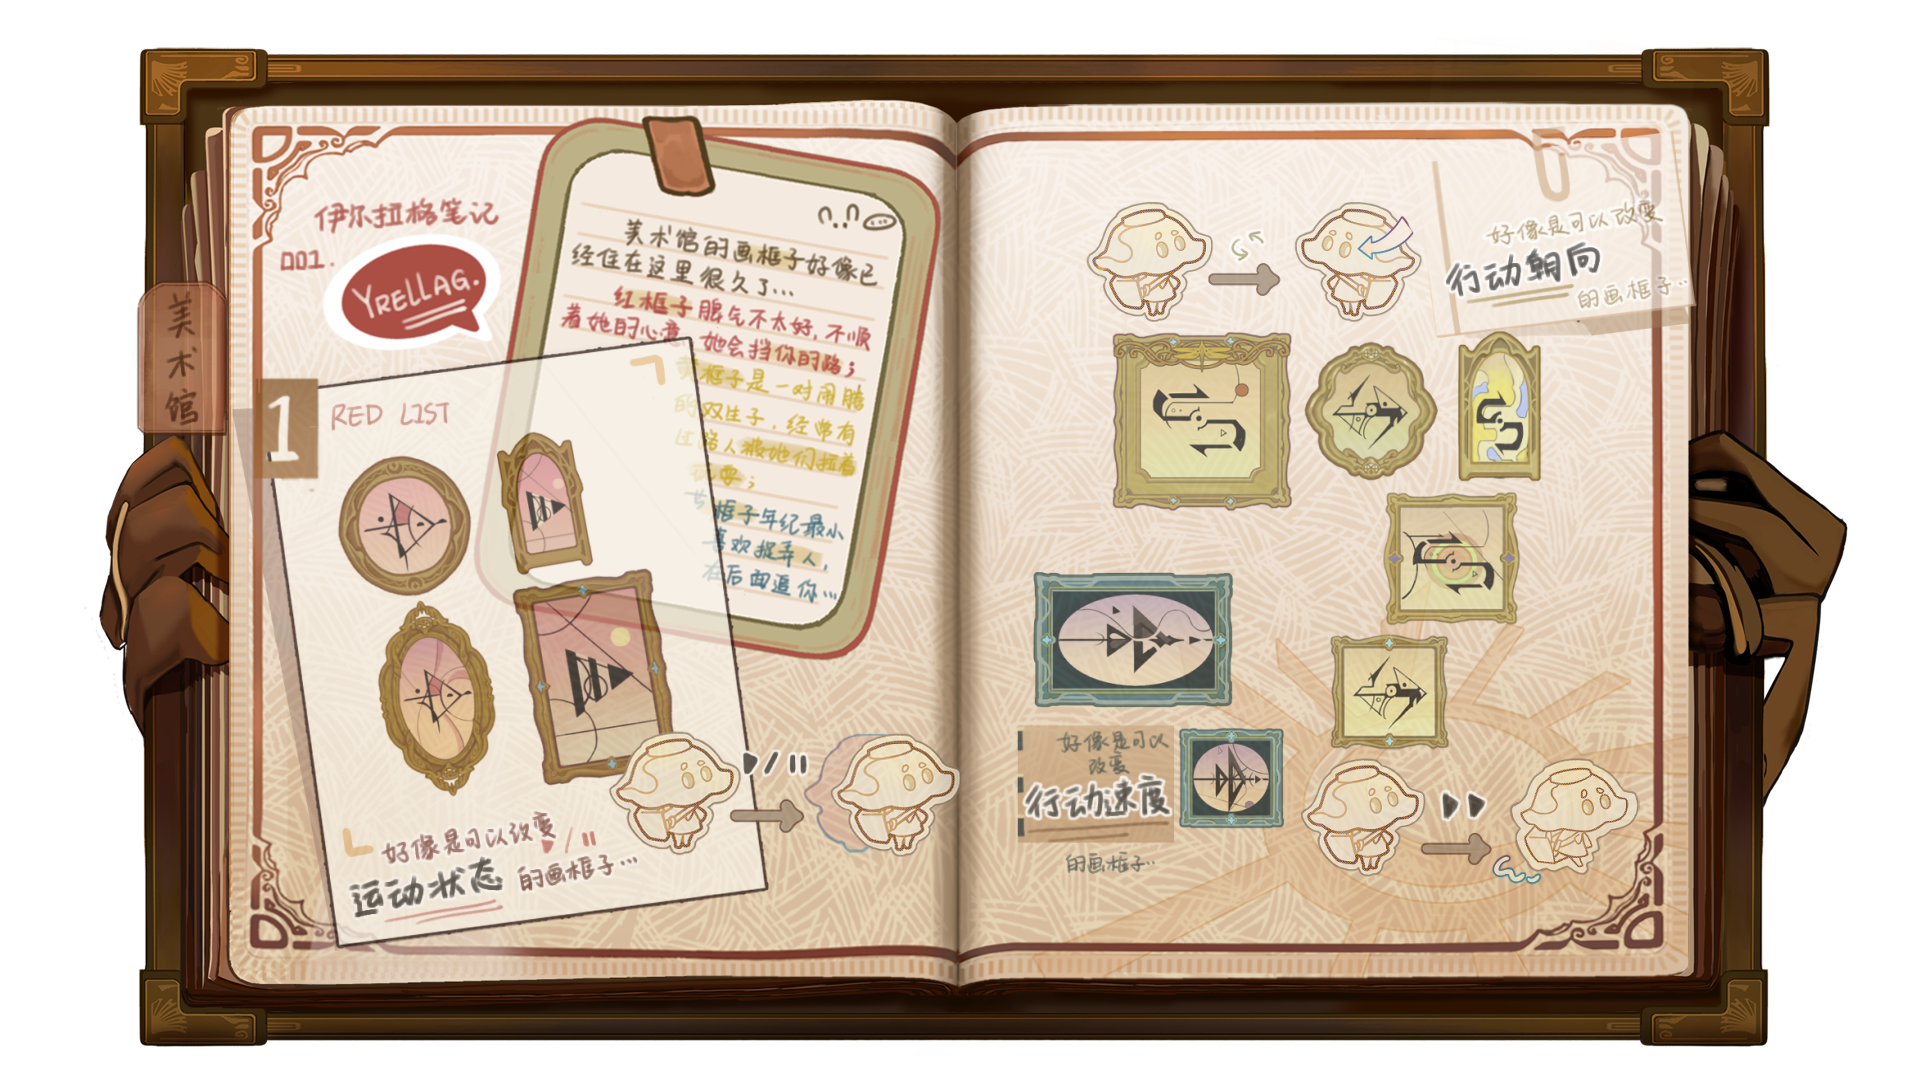 美术馆
伊尔拉格笔记
001.
YRELLAG.
美术馆的画框子好像已
经住在这里很久了...
红框子脾气不太好,不顺
着她的心意,她会挡你的路;
黄框子是一对闹腾
的双生子,经常有
过路人被她们拉着
玩耍;
框子年纪最小
喜欢捉弄人,
在后面追你...
1
RED LIST
好像是可以改变
运动状态 的画框子...
好像是可以改变
行动朝向
的画框子...
好像是可以
改变
行动速度
的画框子...